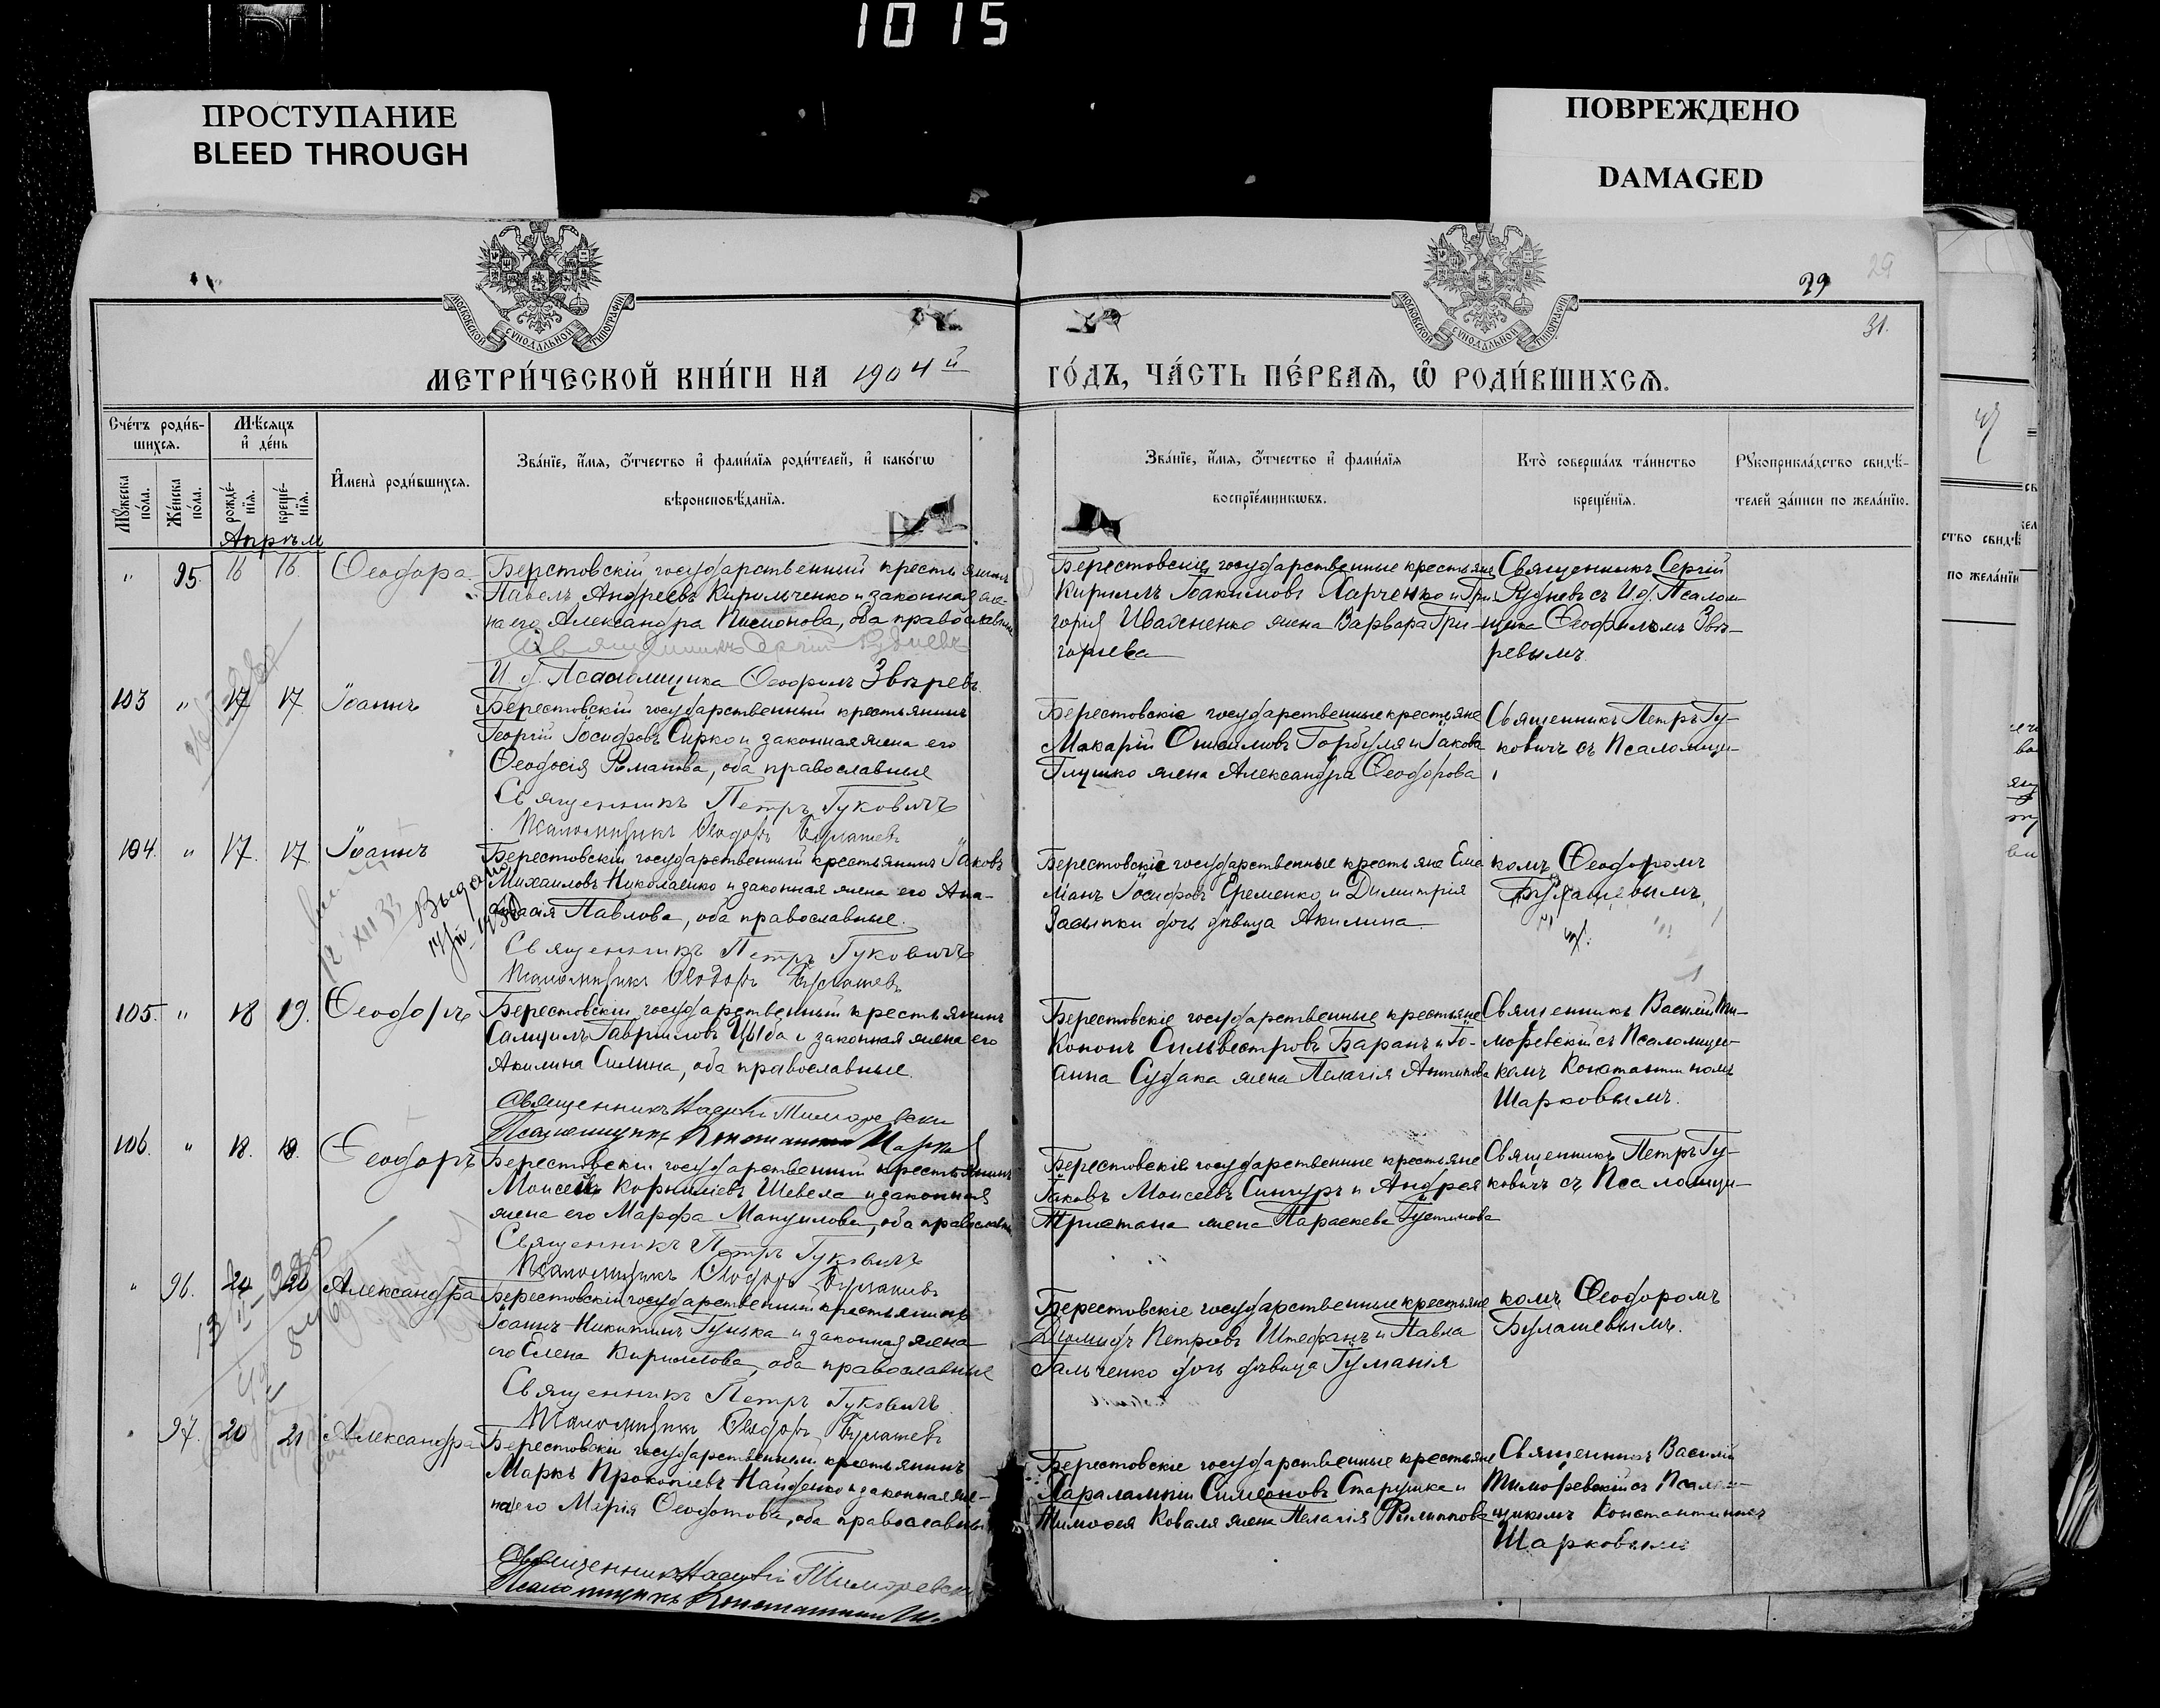 1015
ПРОСТУПАНИЕ
BLEED THROUGH
ПОВРЕЖДЕНО
DAMAGED
МОСКОВСКОЙ СѴНОДАЛЬНОЙ ТИПОГРАФІИ
МОСКОВСКОЙ СѴНОДАЛЬНОЙ ТИПОГРАФІИ
29
29
31.
МЕТРИ́ЧЕСКОЙ КНИ́ГИ НА 1904 й
ГО́ДЪ, ЧА́СТЬ ПЕ́РВАЯ, Ѡ РОДИ́ВШИХСЯ.
Сче́тъ роди́в-
шихся.
Мѣ́сяцъ
и҆ де́нь
Мꙋ́жеска
по́ла.
Же́нска
по́ла.
рожде́-
нїя.
креще́-
нїя.
И҆мена̀ роди́вшихся.
Зва́нїе, и҆́мя, ѻ҆́тчество и҆ фами́лїя роди́телей, и҆ како́гѡ
вѣроисповѣ́данїя.
Зва́нїе, и҆́мя, ѻ҆́тчество и҆ фами́лїя
воспрїе́мникѡвъ.
Кто̀ соверша́лъ та́инство
креще́нїя.
Рꙋкоприкла́дство свидѣ́-
телей за́писи по жела́нїю.
Апрѣль
" 95. 16 16. Ѳеодора.
Берстовскій государственный крестьянинъ
Павелъ Андреевъ Кирильченко и законная же-
на его Александра Пимонова, оба православные
Священникъ Сергій Рудневъ
И. д. Псаломщика Ѳеофилъ Звѣревъ.
Берестовскіе государственные крестьяне
Кириллъ Іоакимовъ Харченко и Гри-
горія Ивахненко жена Варвара Гри-
горьева
Священникъ Сергій
Рудневъ съ И. д. Псалом-
щика Ѳеофиломъ Звѣ-
ревымъ.
103 " 17 17. Іоаннъ
Берестовскій государственный крестьянинъ
Георгій Іосифовъ Сирко и законная жена его
Ѳеодосія Романова, оба православные
Священникъ Петръ Гуковичъ
Псаломщикъ Ѳеодоръ Булашевъ
Берестовскіе государственные крестьяне
Макарій Онисимовъ Горбуля и Іакова
Глушко жена Александра Ѳеодорова
Священникъ Петръ Гу-
ковичъ съ Псаломщи-
104. " 17. 17. Іоаннъ
Выдана
12 XII 33
Берестовскій государственный крестьянинъ Іаковъ
Михаиловъ Николаенко и законная жена его Ана-
стасія Павлова, оба православные.
Священникъ Петръ Гуковичъ
Псаломщикъ Ѳеодоръ Булашевъ
Берестовскіе государственные крестьяне Ема
Іосифовъ Еременко и Димитрія
Засыпки дочь дѣвица Акилина
комъ Ѳеодоромъ
Булашевымъ.
105. " 18 19. Ѳеодоръ
Берестовскій государственный крестьянинъ
Самуилъ Гавриловъ Цыба и законная жена его
Акилина Силина, оба православные.
Священникъ Василій Тиморевскій
Псаломщикъ Константинъ Шарковъ
Берестовскіе государственные крестьяне
Кононъ Сильвестровъ Баранъ и Іо-
анна Судака жена Пелагія Антипова
Священникъ Василій Ти-
моревскій съ Псаломщи-
комъ Константиномъ
Шарковымъ.
106. " 18. 19. Ѳеодоръ
Берестовскій государственный крестьянинъ
Моисей Корниліевъ Шевела и законная
жена его Марфа Мануилова, оба православные
Священникъ Петръ Гуковичъ
Псаломщикъ Ѳеодоръ Булашевъ
Берестовскіе государственные крестьяне
Іаковъ Моисеевъ Синчуръ и Андрея
Тристана жена Параскева Іустинова
Священникъ Петръ Гу-
ковичъ съ Псаломщи-
" 96. 20 Александра
Берестовскій государственный крестьянинъ
Іоаннъ Никитинъ Гунька и законная жена
его Елена Кириллова, оба православные
Священникъ Петръ Гуковичъ
Псаломщикъ Ѳеодоръ Булашевъ
Берестовскіе государственные крестьяне
Діомидъ Петровъ Штефанъ и Павла
Гальченко дочь дѣвица Іуліанія
комъ Ѳеодоромъ
Булашевымъ.
" 97. 20 21 Александра
Берестовскій государственный крестьянинъ
Маркъ Прокопіевъ Найденко и законная же-
на его Марія Ѳеодотова, оба православные
Священникъ Василій Тиморевскій
Псаломщикъ Константинъ Ш.
Берестовскіе государственные крестьяне
Харалампій Симеоновъ Старушка и
Тимофея Коваля жена Пелагія Филиппова
Священникъ Василій
Тиморевскій съ Псалом-
щикомъ Константиномъ
Шарковымъ